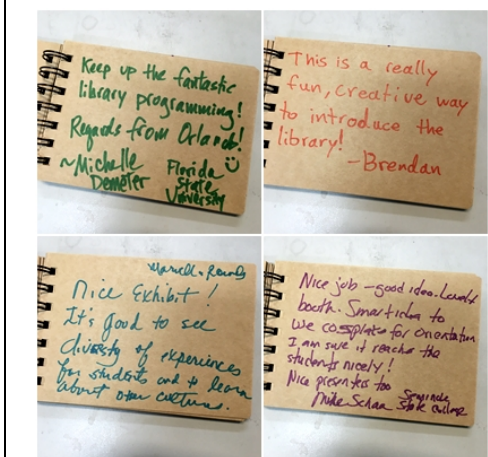 Keep up the fantastic
library programming!
Regards from Orlando!
~Michelle
Demeter
Florida
State
University
This is a really
fun, creative way
to introduce the
library!
-Brendan
Nice Exhibit!
It's good to see
diversity of experiences
for students and to learn
about other cultures.
Nice job - good idea.
booth. Smart idea to
use cosplake for orientation
I am sure it reaches the
students nicely!
Nice presenters too
Mike Schaa
Seminole
State